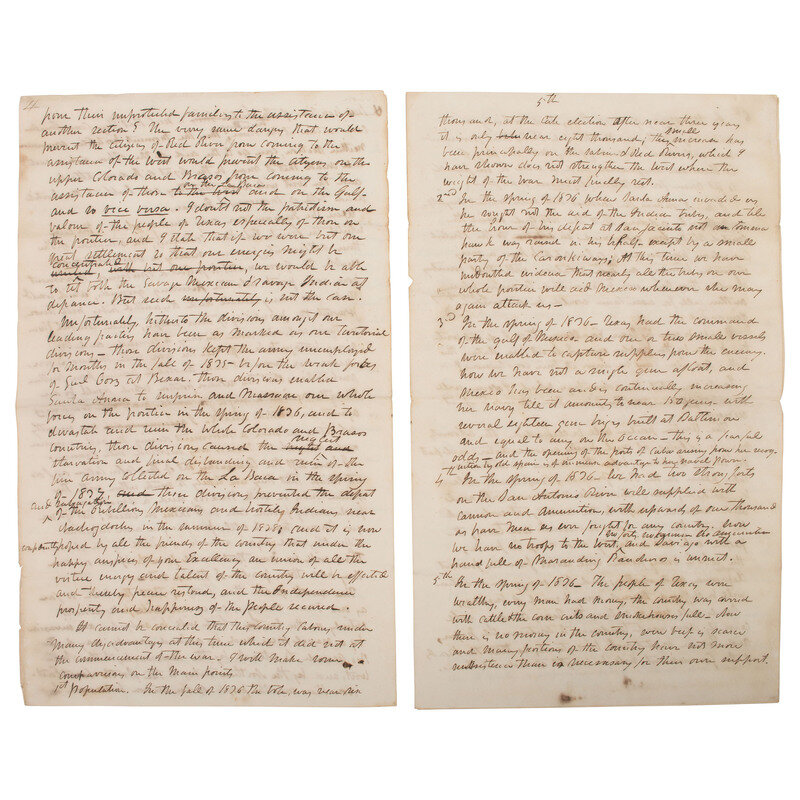 4
from their unprotected families to the assistance of
another section? The very same danger that would
prevent the citizens of Red River from coming to the
assistance of the west would prevent the citizens on the
upper Colorado and Brasos from coming to the
assistance of those on the La Baca and on the Gulf
and vice versa. I doubt not the patriotism and
valour of the people of Texas especially of those on
the frontier, and I state that if we were but one
great settlement so that our energies might be
concentrated but one frontier, we would be able
to set both the Savage Mexican & Savage Indian at
defiance. But such unfortunately is not the case.
Unfortunately, hitherto the divisions amongst our
leading parties have been as marked as our territorial
divisions — those divisions kept the army unemployed
for months in the fall of 1835 before the weak forces
of Genl Cos at Bexar. those divisions enabled
Santa Anna to surprise and Massacre our whole
force on the frontier in the spring of 1836, and to
devastate and ruin the whole Colorado and Brasos
countries, those divisions caused the neglect
starvation and final disbanding and ruin of the
fine army collected on the La Baca in the spring
of 1837, and those divisions prevented the defeat
and
of the Rebellious Mexicans and hostile Indians near
Nacogdoches in the summer of 1838; and it is now
hoped by all the friends of the country that under the
happy auspices of your Excellency an union of all the
virtue energy and talent of the country will be effected
and thereby peace restored, and the Independence
prosperity and happiness of the People secured.
It cannot be concealed that this country labours under
Many disadvantages at this time which it did not at
the commencement of the war. I will make some
comparisons on the main points
1st Population. In the fall of 1836 the vote, was near six
5th
thousand, at the late election after near three years
it is only near eight thousand, this small increase has
been principally on the Sabine & Red Rivers, which I
have shown does not strengthen the West where the
weight of the war must finally rest.
2nd In the spring of 1836 when Santa Anna invaded us
he sought not the aid of the Indian tribes, and till
the hour of his defeat at San Jacinto not a Tomma
hawk was raised in his behalf except by a small
party of the Caronkiways; At this time we have
undoubted evidence that nearly all the tribes on our
whole frontier will aid Mexico whenever she may
again attack us —
3rd In the spring of 1836 — Texas had the command
of the gulf of Mexico and one or two small vessels
were enabled to capture supplies from the enemy.
now we have not a single gun afloat, and
Mexico has been and is continually increasing
her navy till it amounts to near 150 guns. with
several eighteen gun brigs built at Baltimore
and equal to any on the Ocean — this is a fearful
odds — and the opening of the ports of Cuba
by old Spain is of immense advantage to her naval power.
4th In the Spring of 1836 — We had two strong forts
on the San Antonio River well supplied with
cannon and Amunition, with upwards of one thousand
as brave men as ever fought for any country. Now
no forts no cannon no amunition
we have no troops to the West, and Santiago with a
hand full of Marauding Banditti is unmet.
5th In the Spring of 1836 — The people of Texas were
wealthy, every man had money, the country was covered
with cattle & the corn cribs and smokehouses full — Now
there is no money in the country, even beef is scarce
and many portions of the country have not more
subsistence than is necessary for their own support.